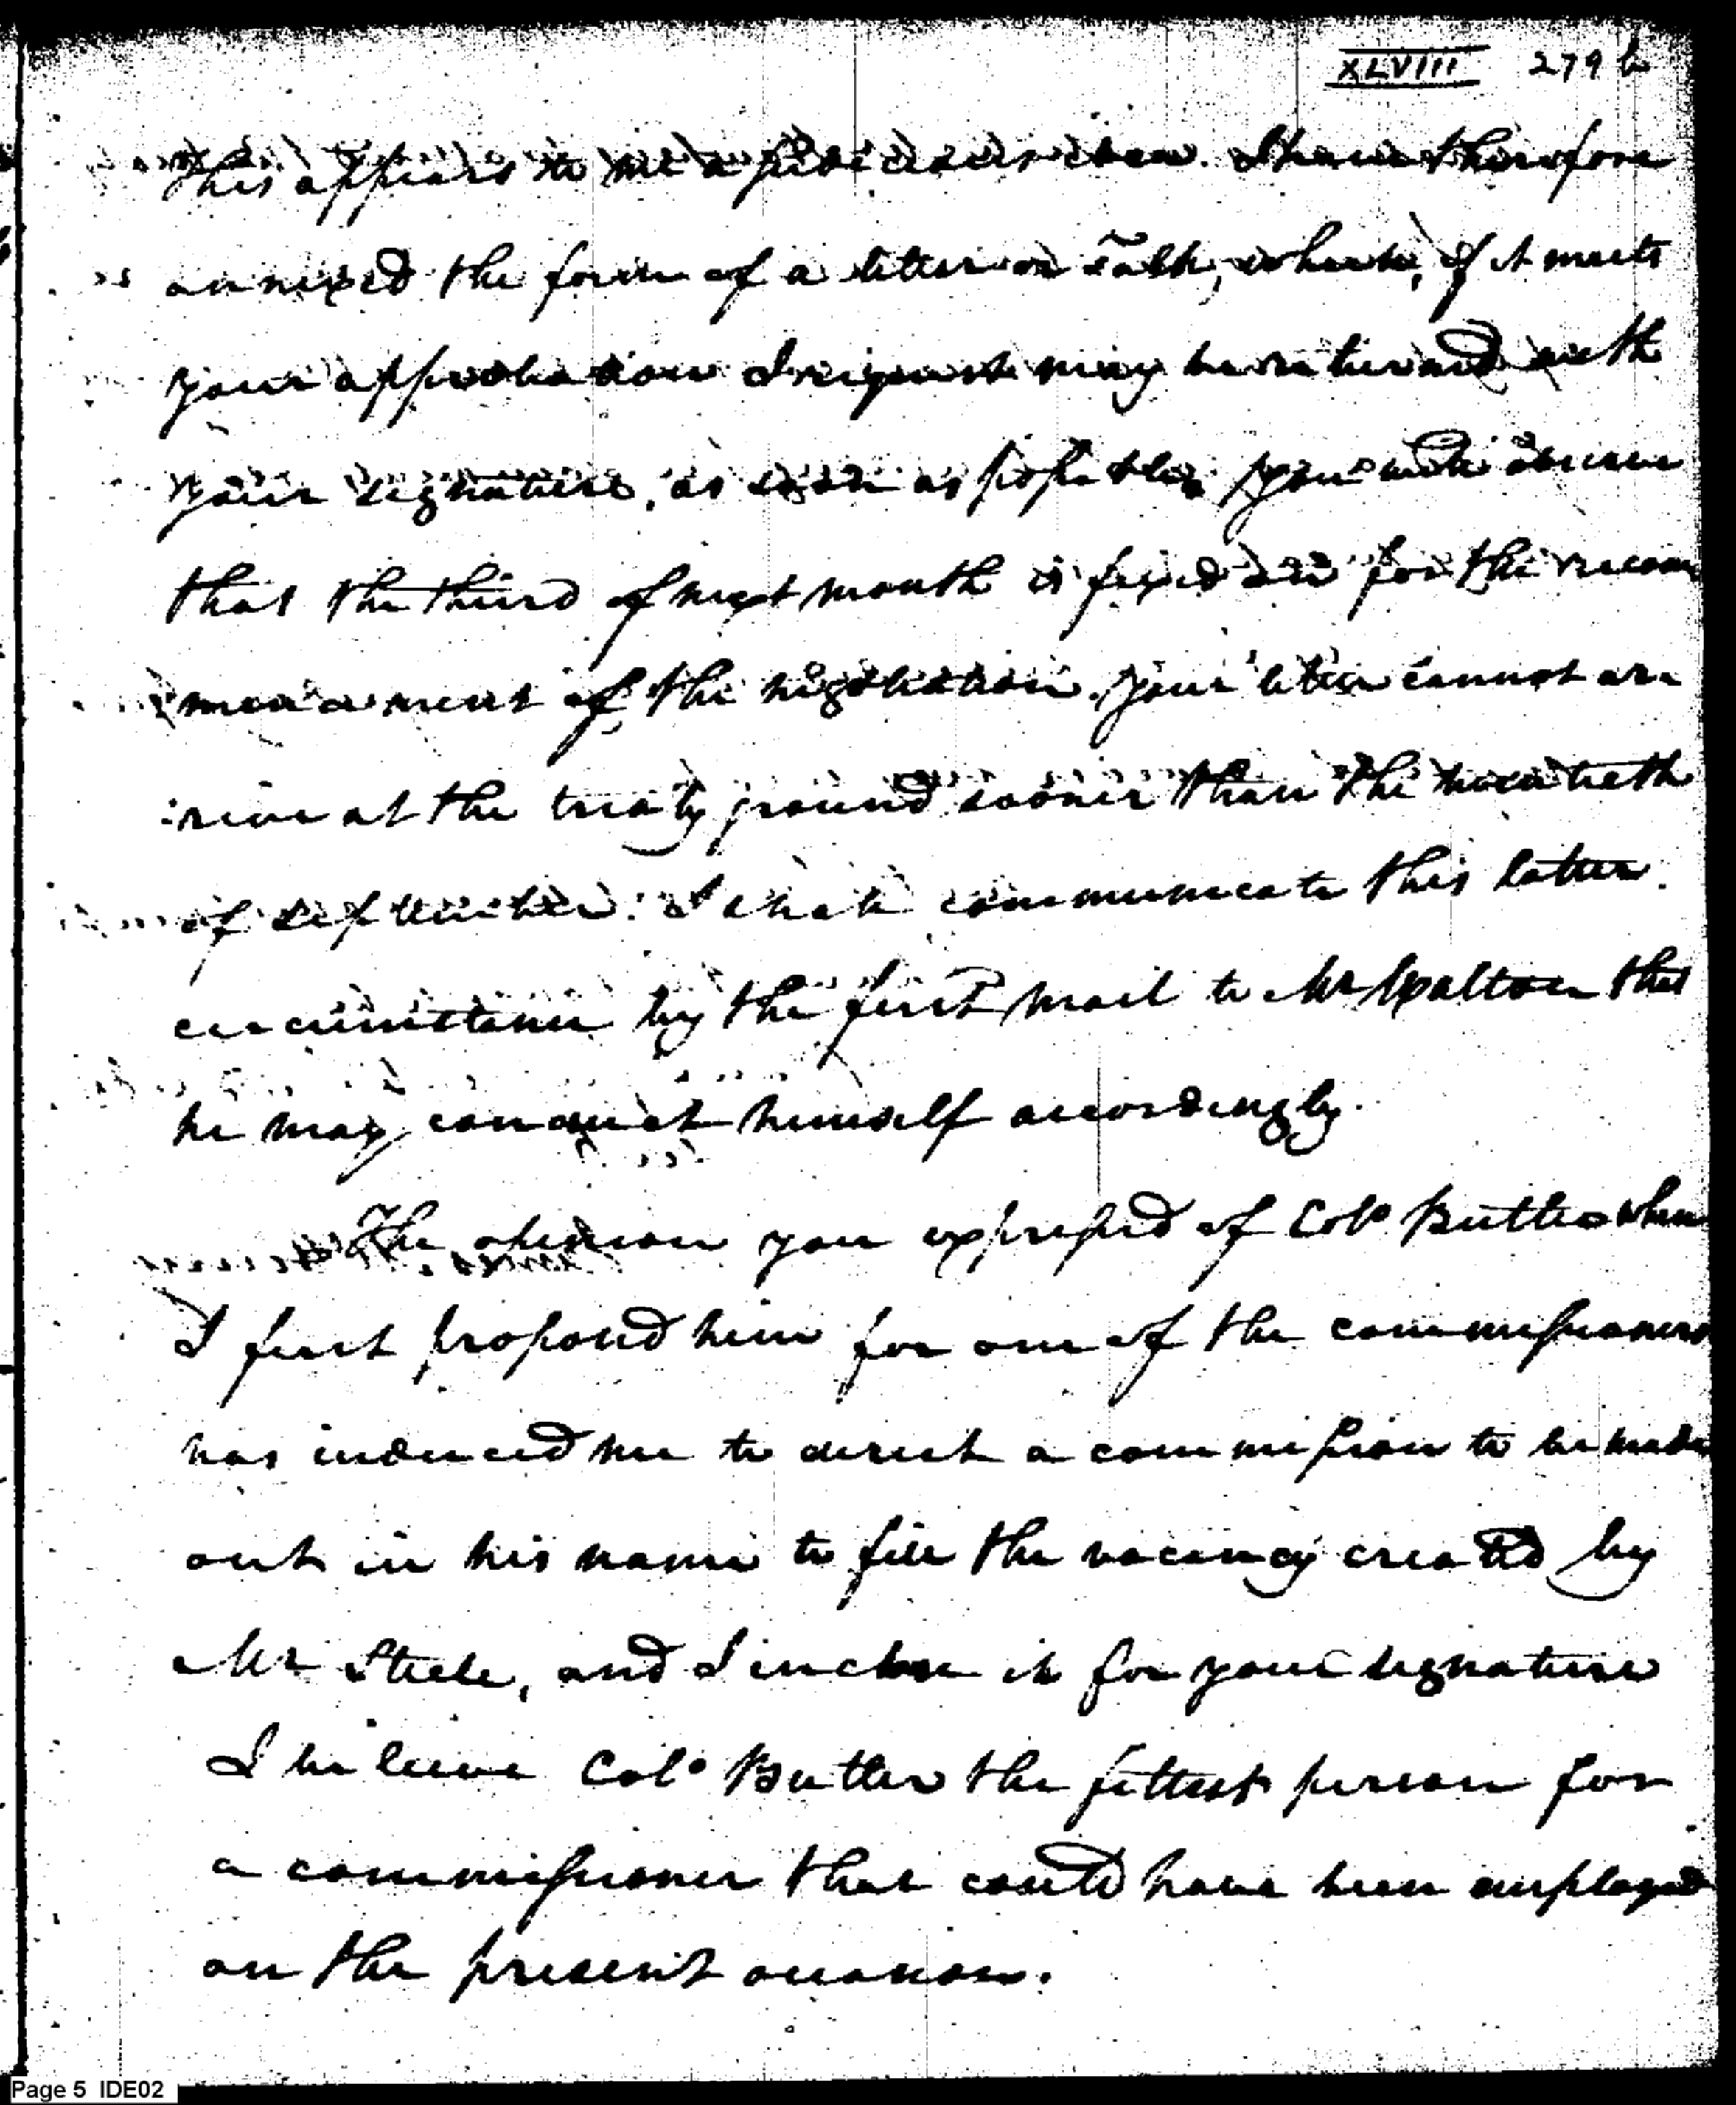 XLVIII 279 b
This appears to me a judicious idea. I have therefore
annexed the form of a letter or Talk, which, if it meets
your approbation I request may be returned with
your signature, as soon as possible. You will observe
that the third of next month is fixed on for the recom
mencement of the negotiation. Your letter cannot ar-
:rive at the treaty ground sooner than the twentieth
of september. I shall communicate this latter
circumstance by the first mail to Mr Walton that
he may conduct himself accordingly.
The opinion you expressed of Colo Butler when
I first proposed him for one of the commissioners
has induced me to direct a commission to be made
out in his name to fill the vacancy created by
Mr Steele, and I inclose it for your signature
I believe Colo Butler the fittest person for
a commissioner that could have been employed
on the present occasion.
Page 5 IDE02